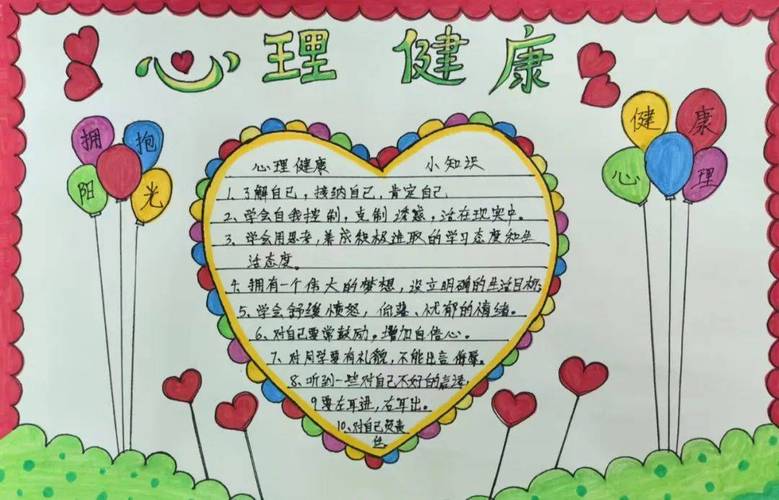 心理健康
拥抱
阳光
健康
心理
心理健康 小知识
1、了解自己，接纳自己，肯定自己
2、学会自我控制，克制 活在现实中。
3、学会用思考，养成积极进取的学习态度和生
活态度。
4、拥有一个伟大的梦想，设立明确的生活目标；
5、学会舒缓愤怒，伤悲、忧郁的情绪。
6、对自己要常鼓励。增加自信心。
7、对同学要有礼貌，不能出言
8、听到一些对自己不好的言语
9要左耳进，右耳出。
10、对自己负责